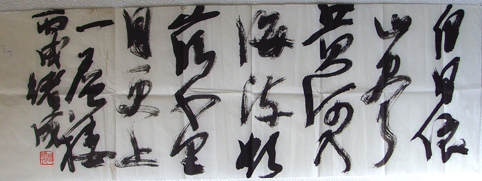 白日依
山尽
黄河入
海流欲
穷千里
目更上
一层楼
丙戌